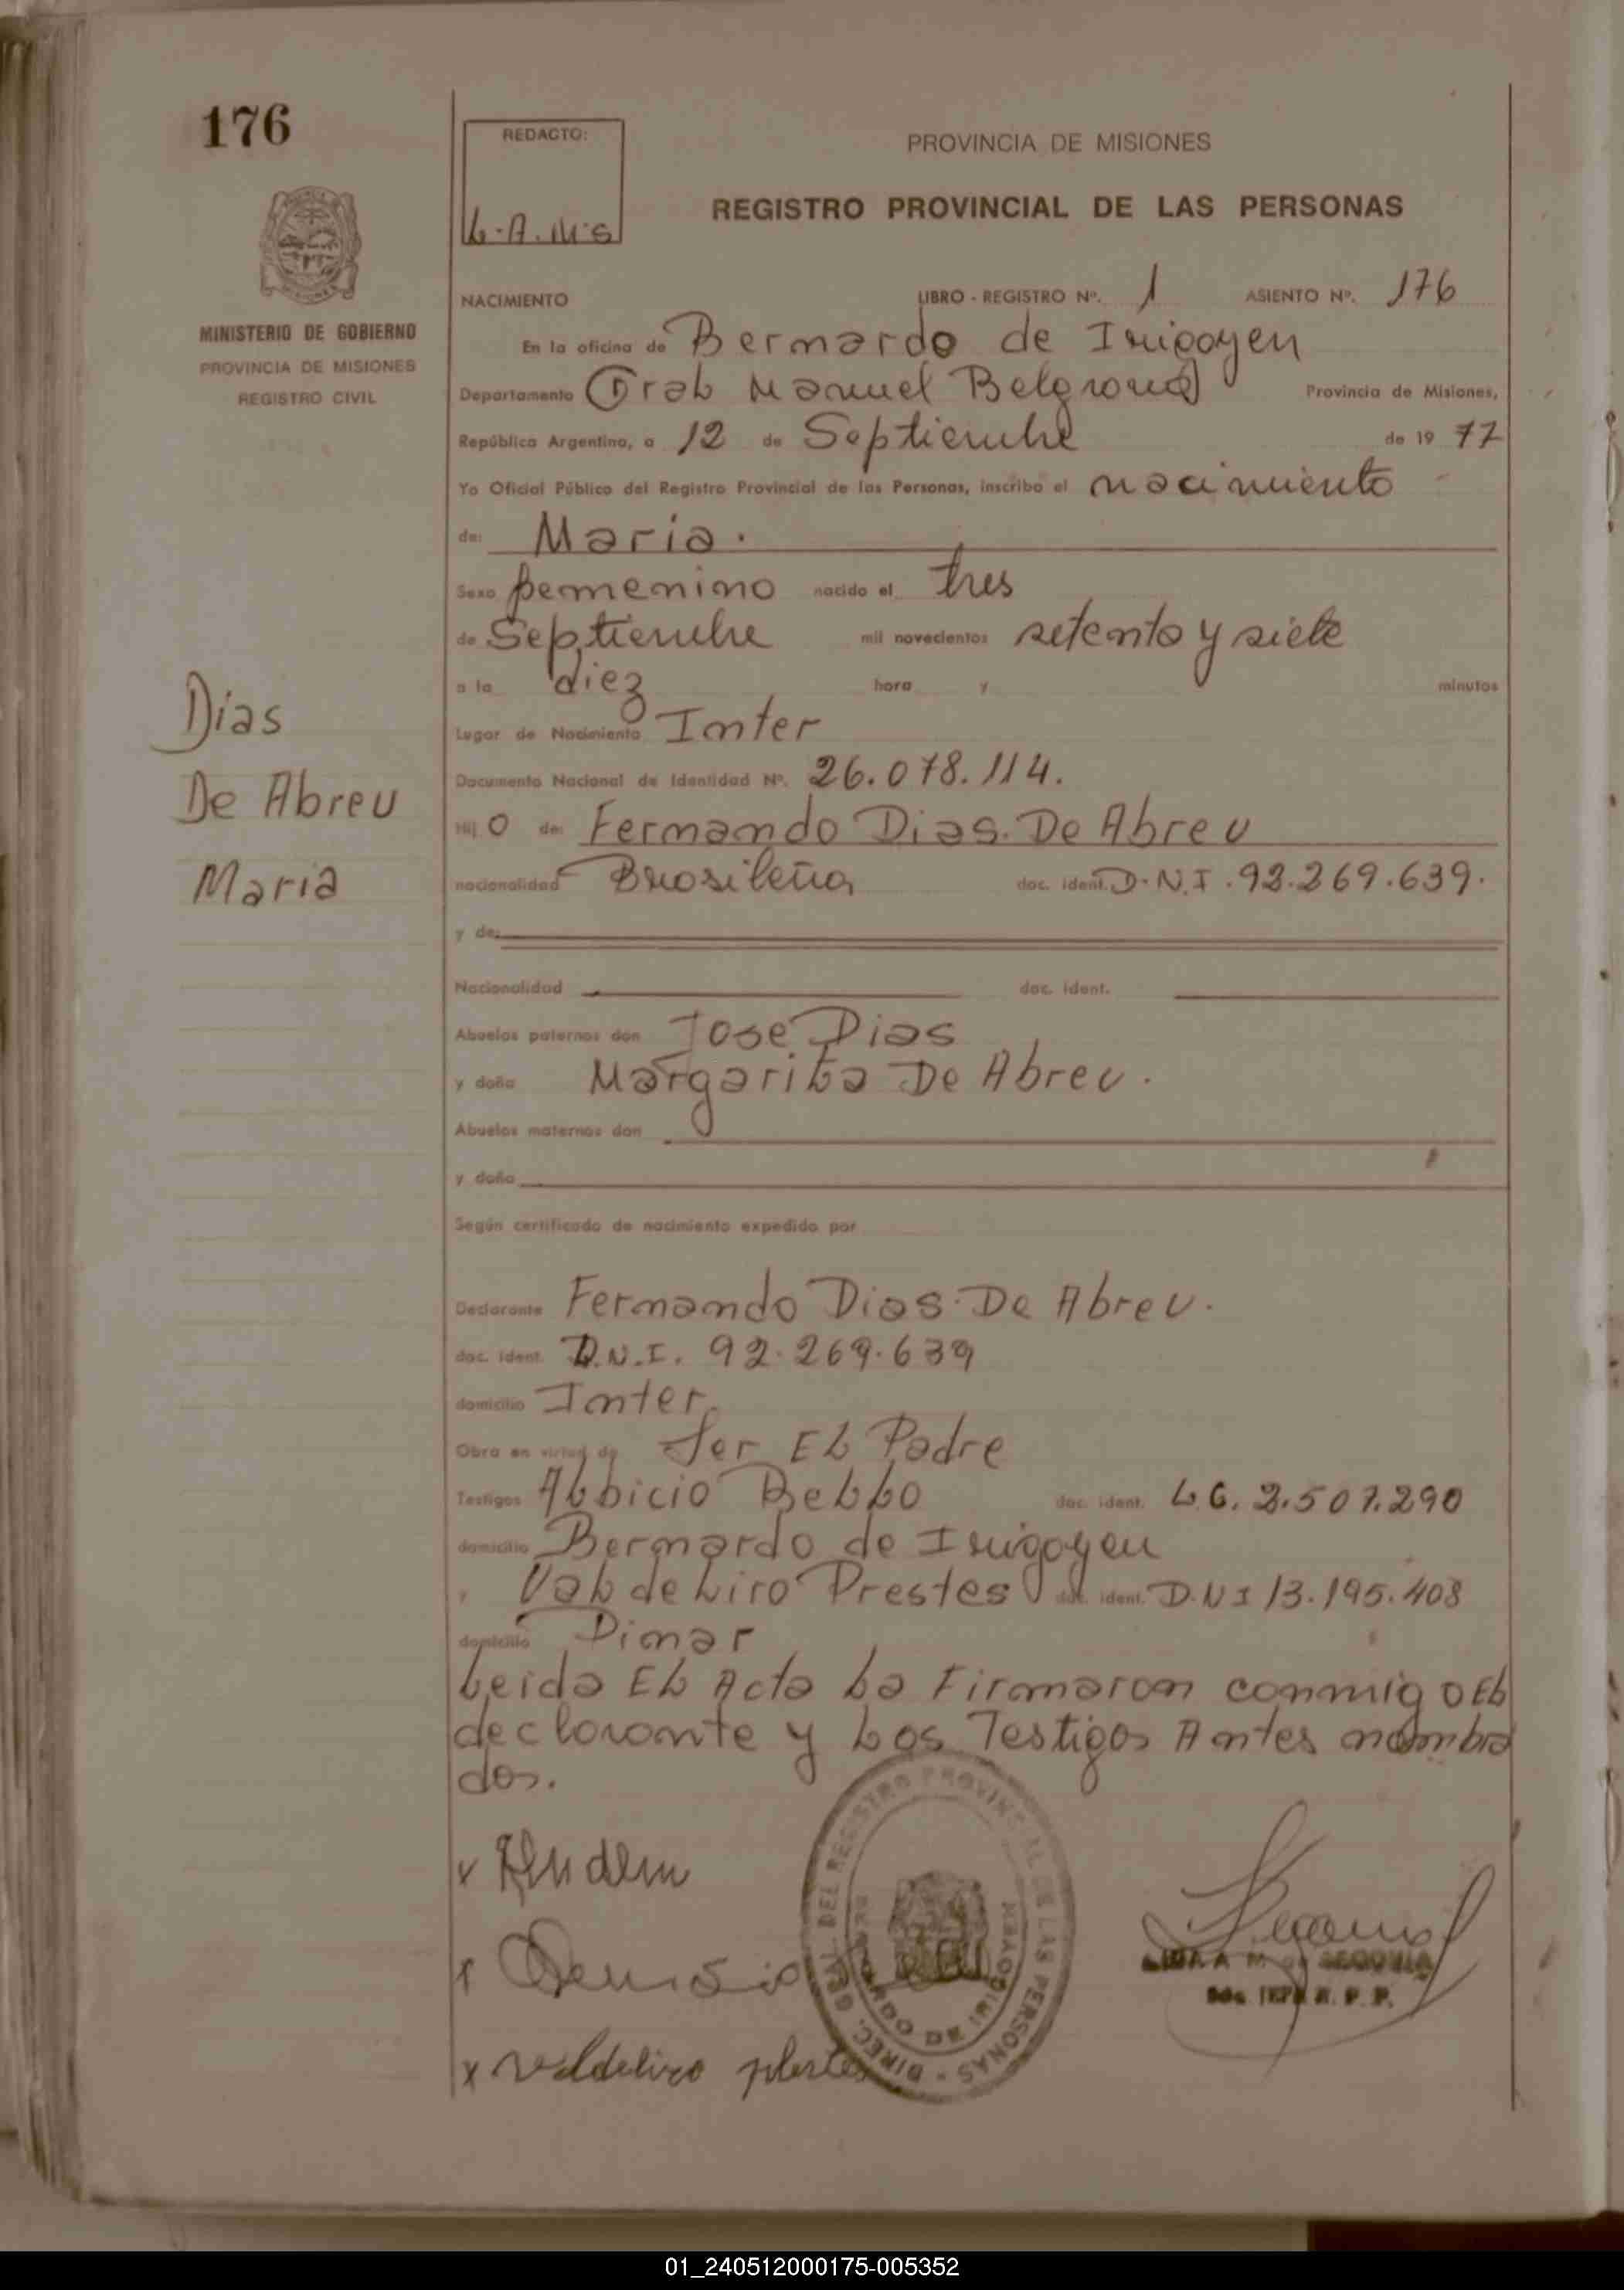 176
REDACTO:
L.A.M.S
PROVINCIA DE MISIONES
REGISTRO PROVINCIAL DE LAS PERSONAS
MINISTERIO DE GOBIERNO
PROVINCIA DE MISIONES
REGISTRO CIVIL
NACIMIENTO LIBRO - REGISTRO Nº. 1 ASIENTO Nº. 176
En la oficina de Bernardo de Irigoyen
Departamento Gral Manuel Belgrano Provincia de Misiones,
República Argentina, a 12 de Septiembre de 19 77
Yo Oficial Público del Registro Provincial de las Personas, inscribo el nacimiento
de: Maria.
Sexo femenino nacido el tres
de Septiembre mil novecientos setenta y siete
a la diez hora y minutos
Lugar de Nacimiento Inter
Documento Nacional de Identidad Nº. 26.078.114.
Hij o de: Fernando Dias. De Abreu
nacionalidad Brasileña doc. ident. D.N.I. 92.269.639.
y de:
Nacionalidad doc. ident.
Abuelos paternos don Jose Dias
y doña Margarita De Abreu.
Abuelos maternos don
y doña
Según certificado de nacimiento expedido por
Declarante Fernando Dias. De Abreu.
doc. ident. D.N.I. 92.269.639
domicilio Inter.
Obra en virtud de Ser El Padre
Testigos Albicio Bello doc. ident. L.C. 2.507.290
domicilio Bernardo de Irigoyen
y Valdeliro Prestes doc. ident. D.N I 13.195.408
domicilio Dinar
Leida El Acta La Firmaron conmigo El
declarante y Los Testigos Antes nombra
dos.
Dias
De Abreu
Maria
x
x
x valdeliro
DIREC. GRAL. DEL REGISTRO PROVINCIAL DE LAS PERSONAS
BERNARDO DE IRIGOYEN
LIDIA A M de SEGOVIA
R. P. P.
01_240512000175-005352